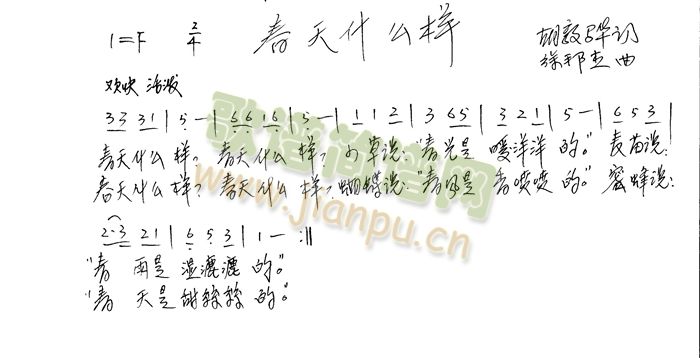 1=F 2/4 春天什么样 胡敦骅词
徐邦杰曲
欢快 活泼
33 31 | 5 — | 66 16 | 5 — | 1 1 2 | 3 65 | 3 21 | 5 — | 6 5 3 |
春天什么样？春天什么样？小草说："春光是 暖洋洋 的。"麦苗说：
春天什么样？春天什么样？蝴蝶说："春风是 香喷喷 的。"蜜蜂说：
2·3 21 | 6 5 3 | 1 — :||
"春 雨是 湿漉漉 的。"
"春 天是 甜丝丝 的。"
歌谱简谱网
www.jianpu.cn